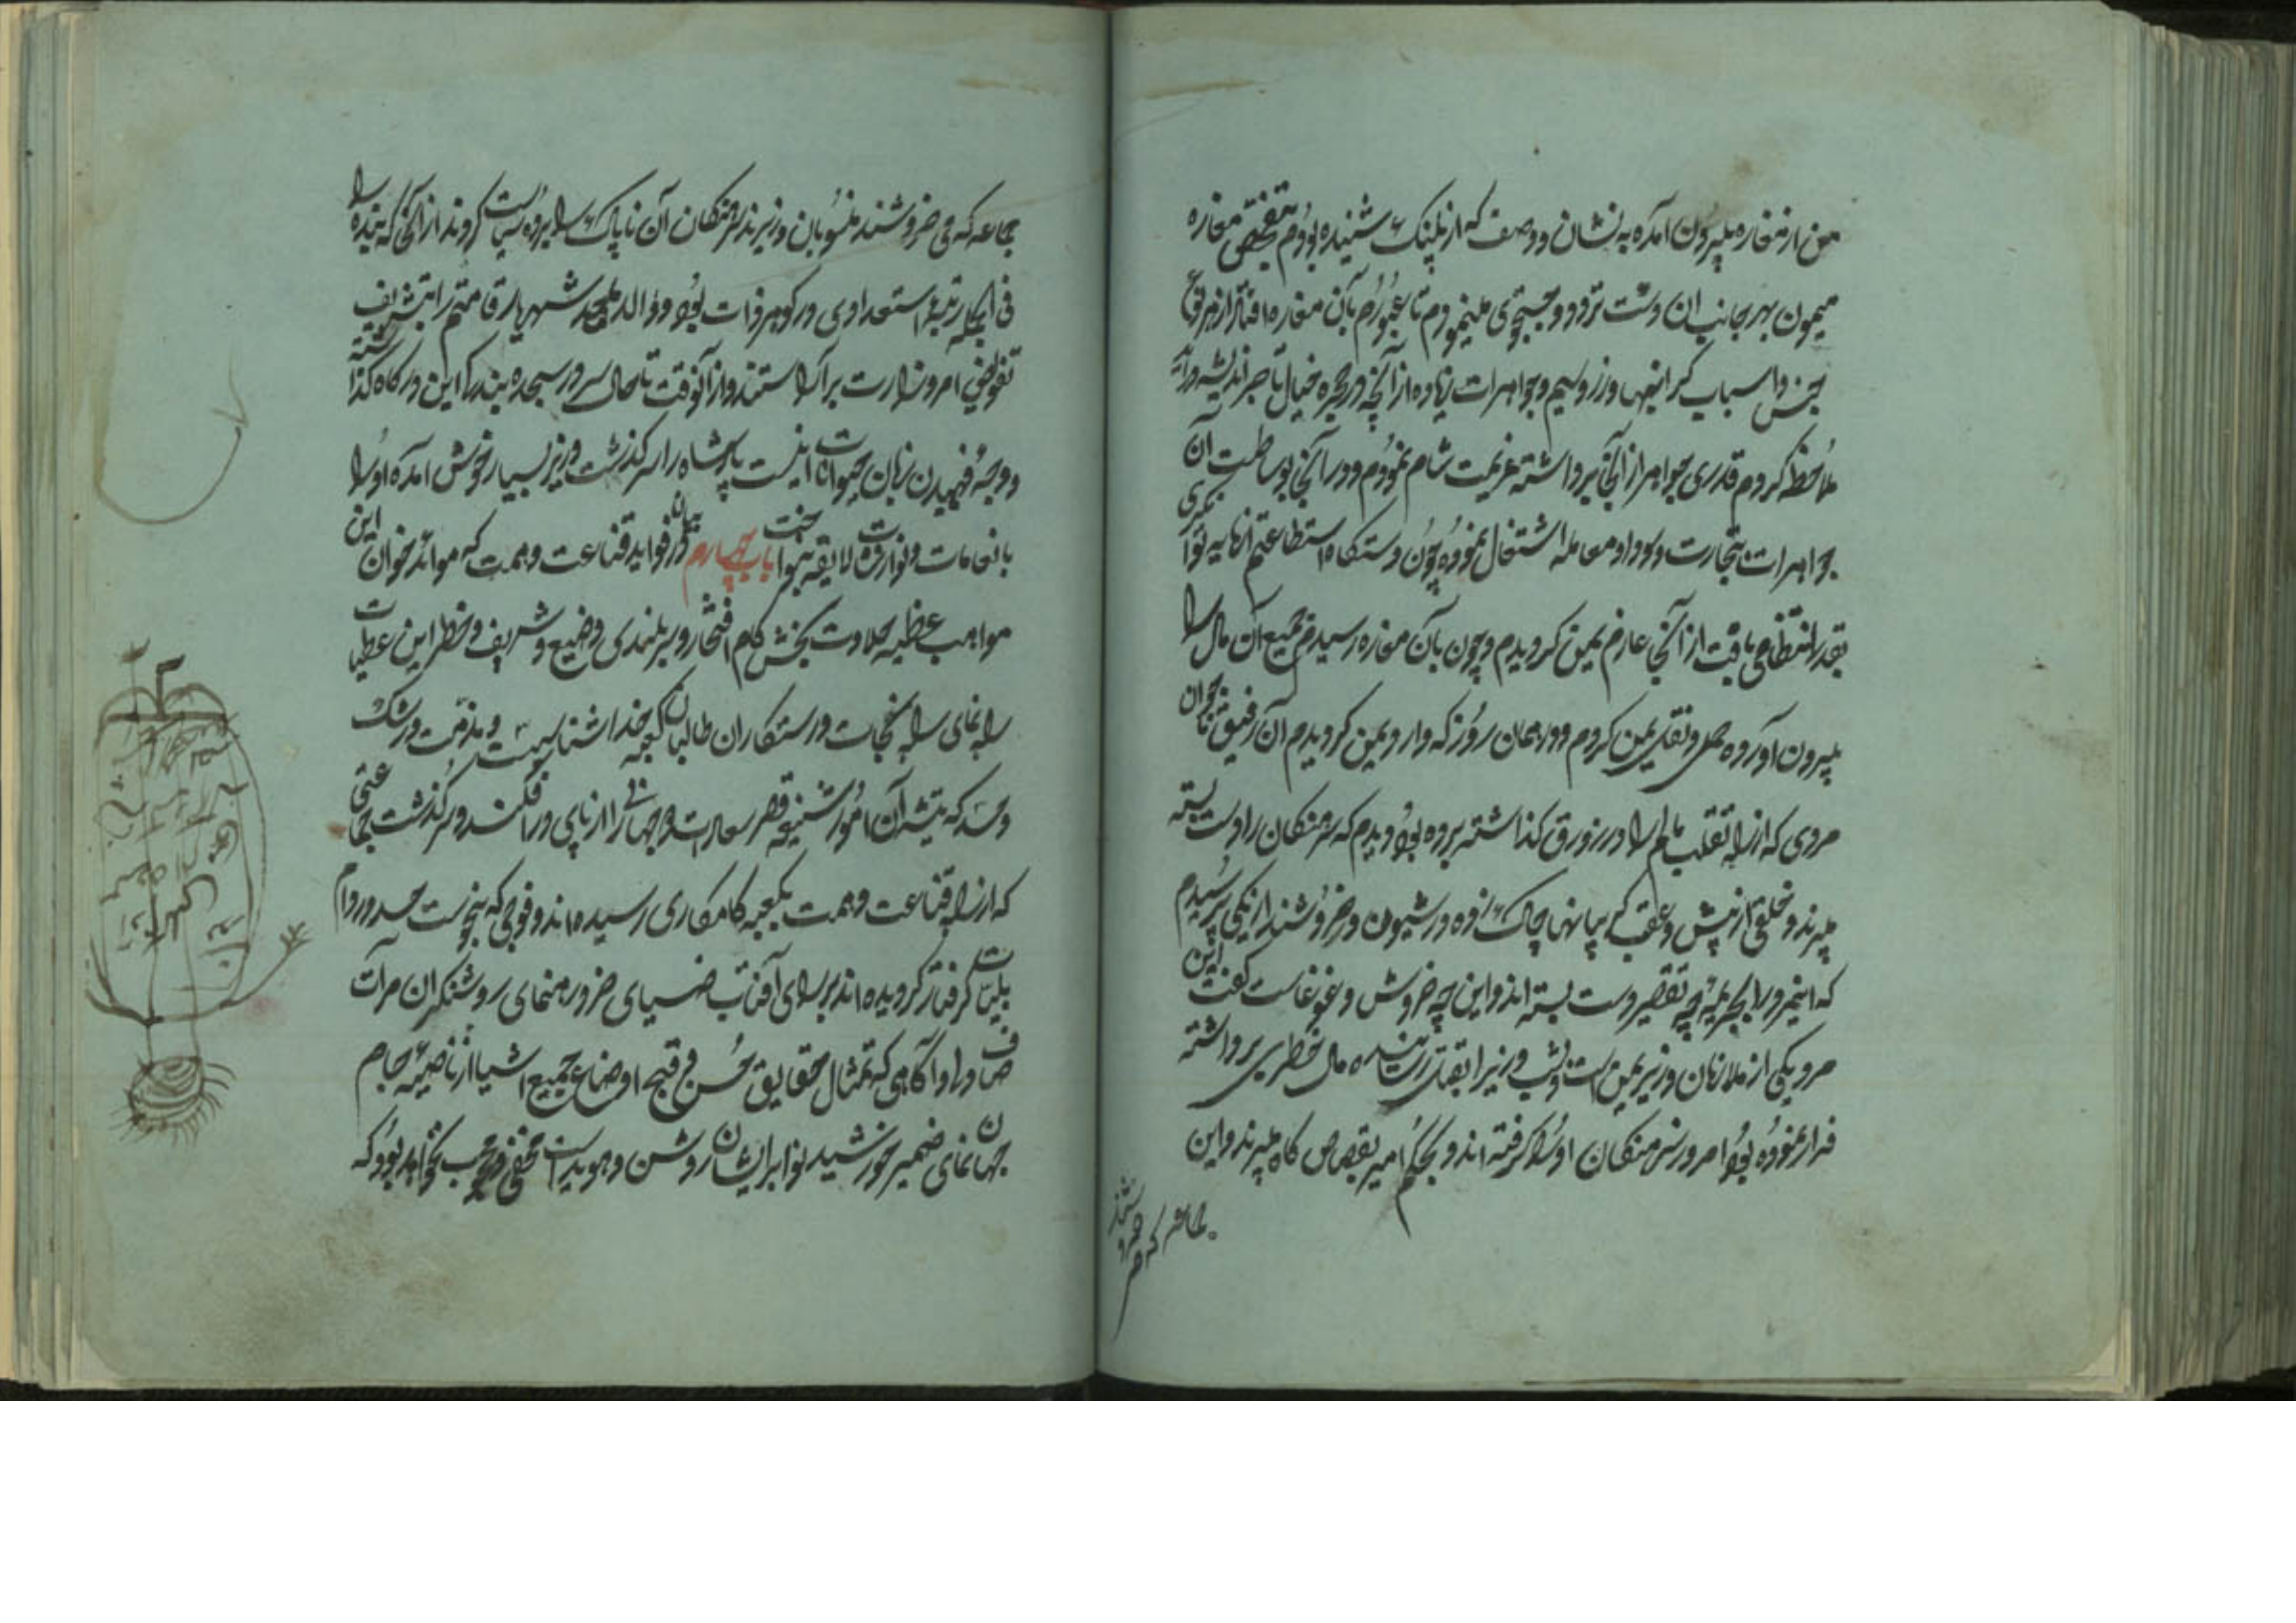 من از مغاره بیرون آمده به نشان و وصف که از پلنک شنیده بودم بتفحص مغاره
میمون بهر جانب ان دشت تردد و جستجوی مینمودم تا عبورم بآن مغاره افتاد از هر نوع
جنس و اسباب کرانبها و زر و سیم و جواهرات زیاده از آنچه در حجره خیال تاجر اندیشه درآید
ملاحظه کردم قدری جواهر از آنجا برداشته عزیمت شام نمودم و در آنجا بوساطت آن
جواهرات بتجارت و داد و معامله اشتغال نموده چون دستکاه استطاعتم انهایه نوا نکری
بقدر انتظامی یافت از آنجا عازم یمن کردیدم و چون بآن مغاره رسیدم جمیع آن مال را
بیرون آورده حمل و نقل یمن کردم و در همان روز که وارد یمن کردیدم آن رفیق ناجوان
مردی که از راه تقلب مالم را در زورق کذاشته برده بود دیدم که سرهنکان را دست بسته
میبرند و خلقی از پیش و عقب کریبانها چاک زده در شیون و خروشند از یکی پرسیدم
که اینمرد را بجریمه چه تقصیر دست بسته اند و این چه خروش و غوغاست کفت این
مرد یکی از ملازمان وزیر یمن است و شب وزیر را بقتل رسانیده مال خطری برداشته
فرار نموده بود امروز سرهنکان او را کرفته اند و بحکم امیر بقصاص کاه میبرند و این
جماعه که می خروشند منسوبان وزیرند سرهنکان آن ناپاک را برده سیاست کردند از آنجا که بنده را
فی الجمله رتبهٔ استعدادی در کوهر ذات بود و والد ماجد شهریار قامتم را بتشریف
تفویض امر وزارت برآراستند و از آنوقت تا حال سر در سجده بندکی این درکاه کذاشته
و وجه فهمیدن زبان حیوانات اینست پادشاه را سرکذشت وزیر بسیار خوش آمده او را
بانعامات و نوازشات لایقه بنواخت باب چهارم در بیان فواید قناعت و همت که موائد خوان این
مواهب عظیمه حلاوت بخش کام افتخار و سربلندی وضیع و شریف و خطر این عطیات
راه نمای راه نجات و رستکاران طالبان کعبه خداشناسیست و مذمت و رشک
و حسد که تیشه آن امور شنیعه قصر سعادت جهانی را از پای در افکند و سرکذشت جماعتی
که از راه قناعت و همت بکعبه کامکاری رسیده اند و فوجی که بنحوست حسد در دام
بلیات کرفتار کردیده اند بر رای آفتاب ضیای خرد رهنمای روشنکران مرآت
صاف ادراک و آکاهی که تمثال حقایق حسن و قبح اوضاع جمیع اشیا از ناصیهٔ جام
جهان نمای ضمیر خورشید نوا بر ایشان روشن و هویداست مخفی و محجب نخواهد بود که